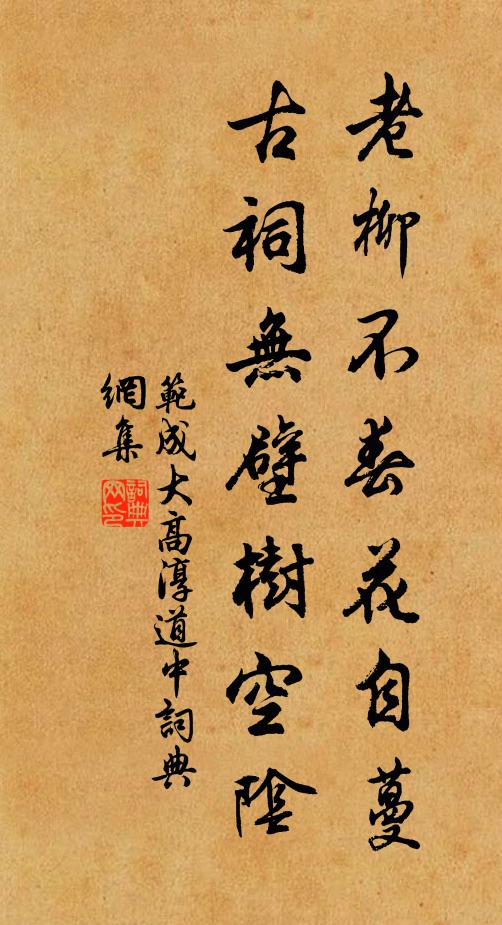 老柳不春花自蔓
古祠無壁樹空陰
範成大高淳道中詞典
網集
詞典
网印